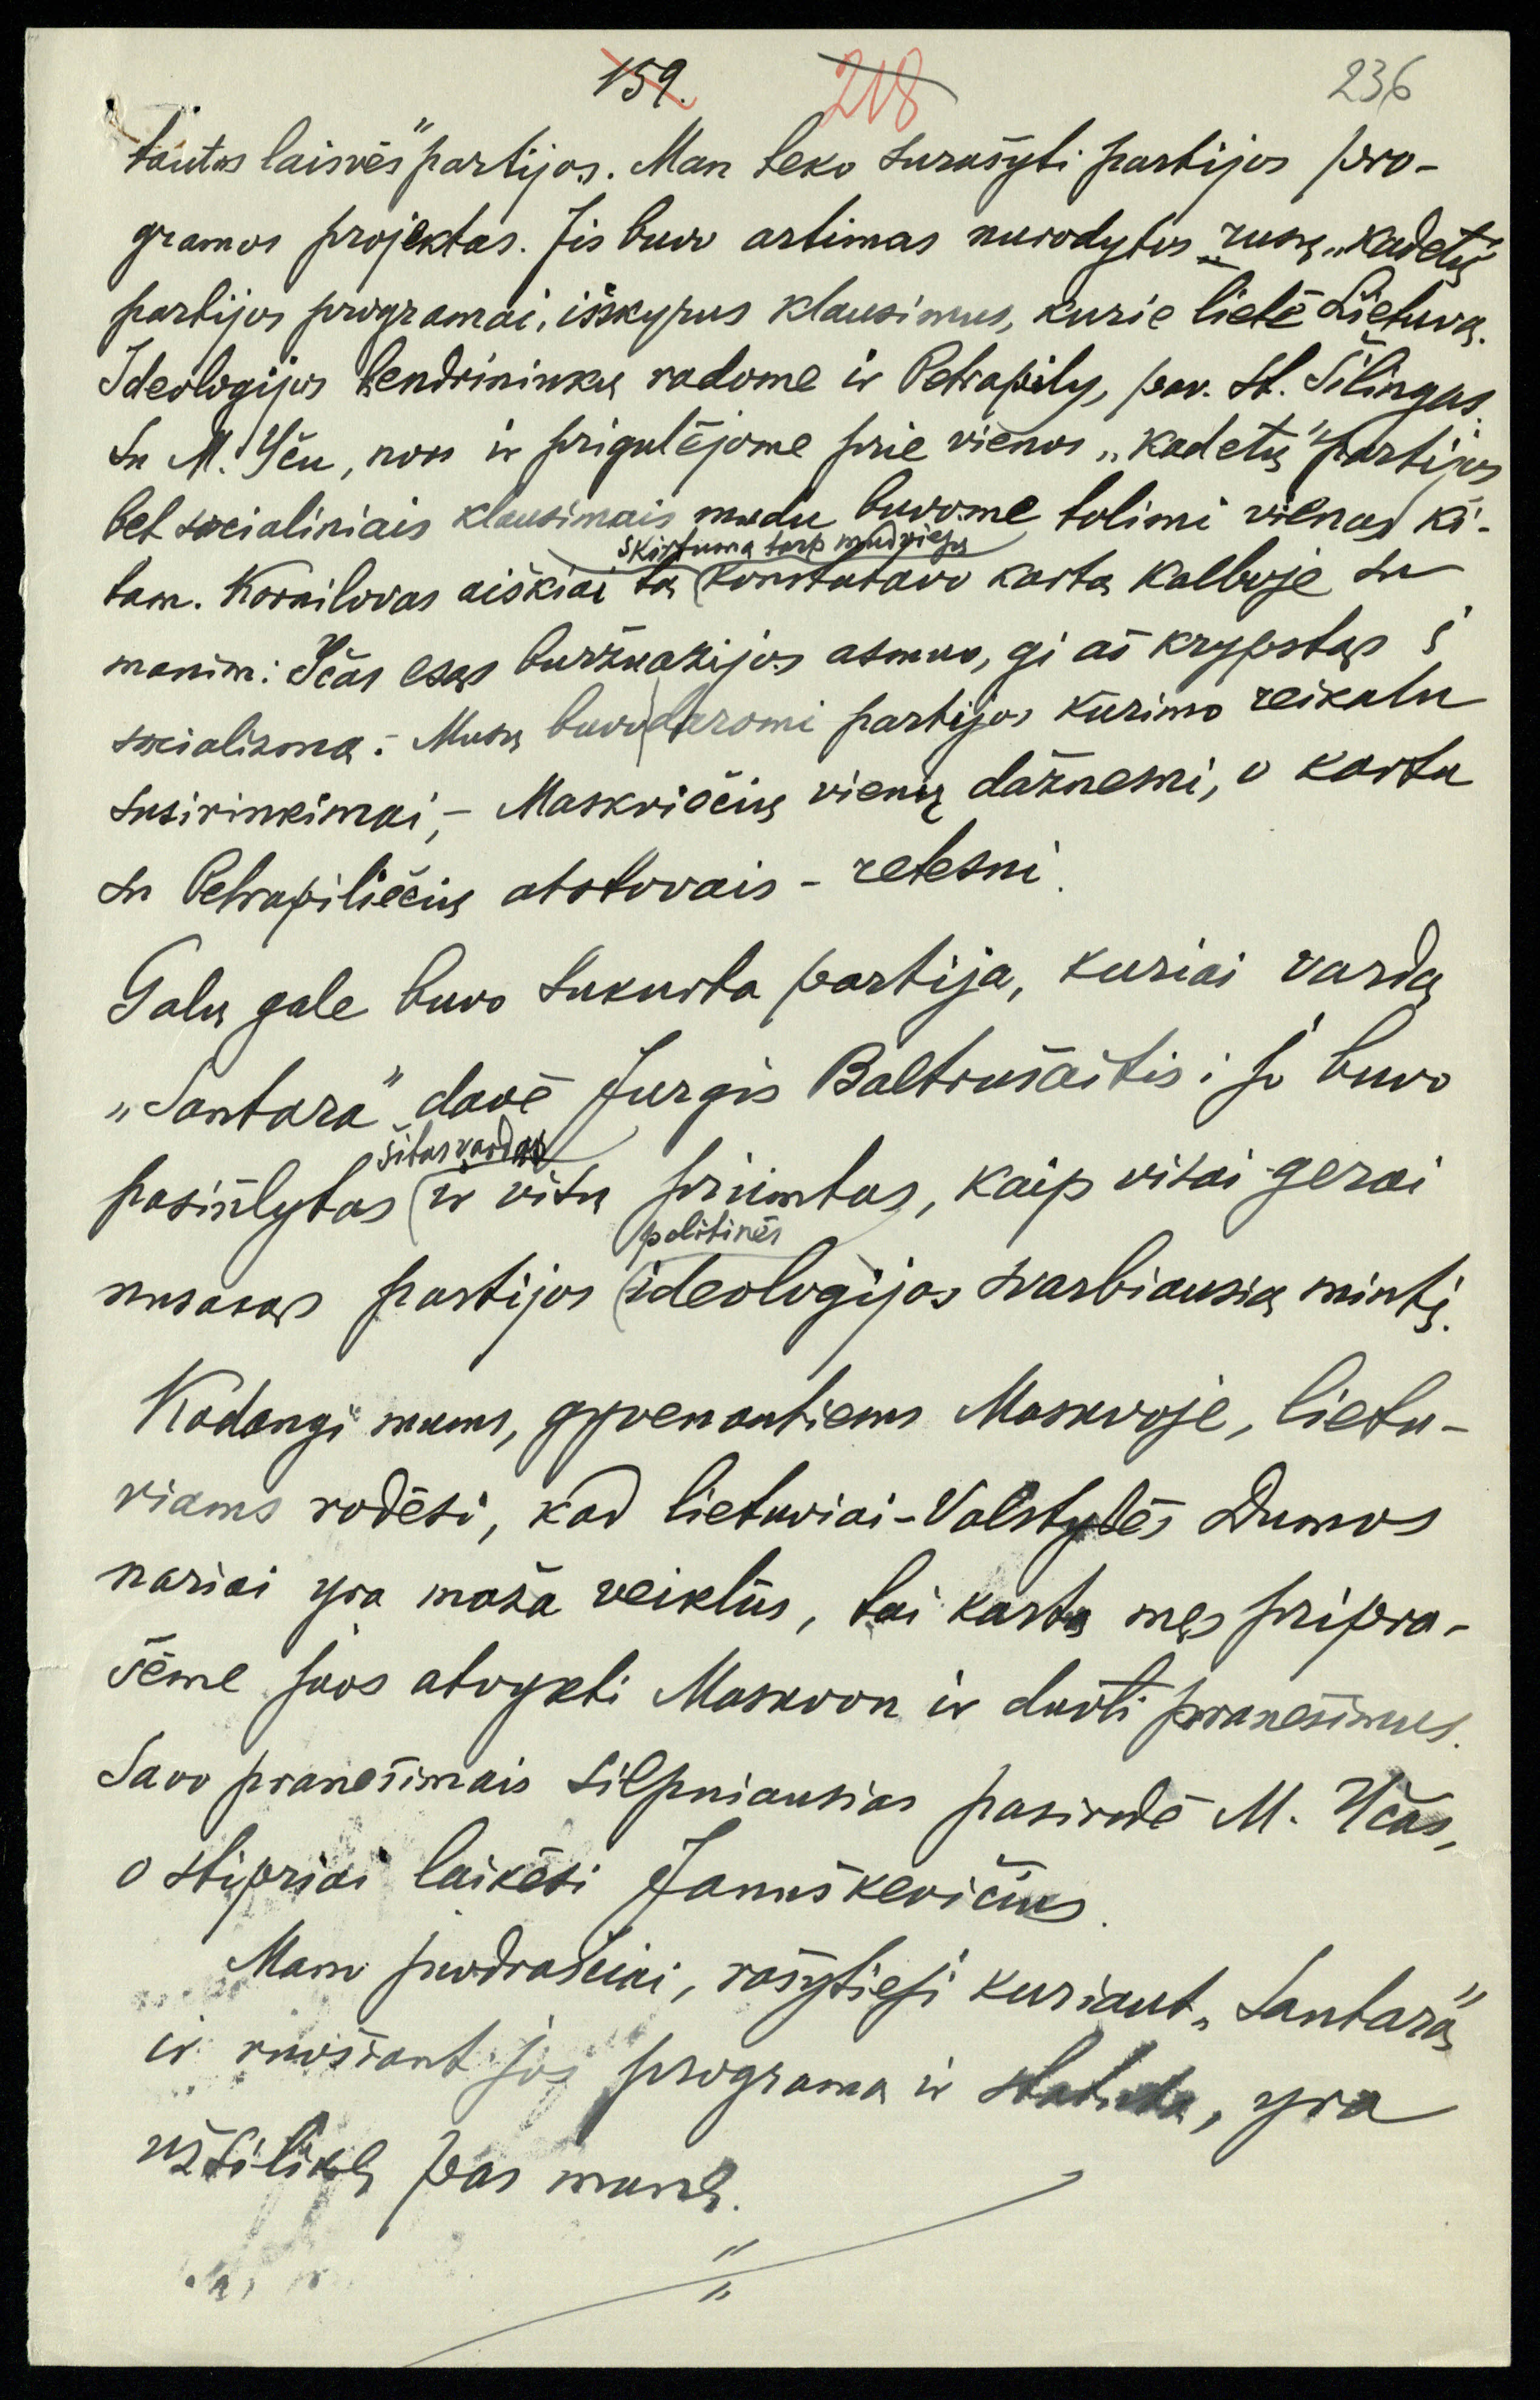 159. 218 236
tautos laisvės" partijos. Man teko surašyti partijos pro-
gramos projektas. Jis buvo artimas nurodytos rusų „kadetų"
partijos programai, išskyrus klausimus, kurie lietė Lietuvą.
Ideologijos bendrininkų radome ir Petrapily, pav. St. Šilingas.
Su M. Yču, nors ir prigulėjome prie vienos „kadetų" partijos
bet socialiniais klausimais mudu buvome tolimi vienas ki-
skirtumą tarp mudviejų
tam. Kornilovas aiškiai tą konstatavo kartą kalboje su
manim: Yčas esąs buržuazijos asmuo, gi aš krypstąs į
socializmą. – Musų buvo daromi partijos kūrimo reikalu
susirinkimai, – Maskviečių vienų dažnesni, o kartu
su Petrapiliečių atstovais – retesni.
Galų gale buvo sukurta partija, kuriai vardą
„Santara" davė Jurgis Baltrušaitis; jo buvo
šitas vardas
pasiūlytas ir visų priimtas, kaip visai gerai
politinės
nusakąs partijos ideologijos svarbiausią mintį.
Kadangi mums, gyvenantiems Maskvoje, lietu-
viams rodėsi, kad lietuviai-Valstybės Dumos
nariai yra maža veiklūs, tai kartą mes pripra-
šėme juos atvykti Maskvon ir duoti pranešimus.
Savo pranešimais silpniausias pasirodė M. Yčas,
o stipriai laikėsi Januškevičius.
Mano juodraščiai, rašytieji kuriant „Santarą"
ir ruošiant jos programą ir statutą, yra
užsilikę pas manę.